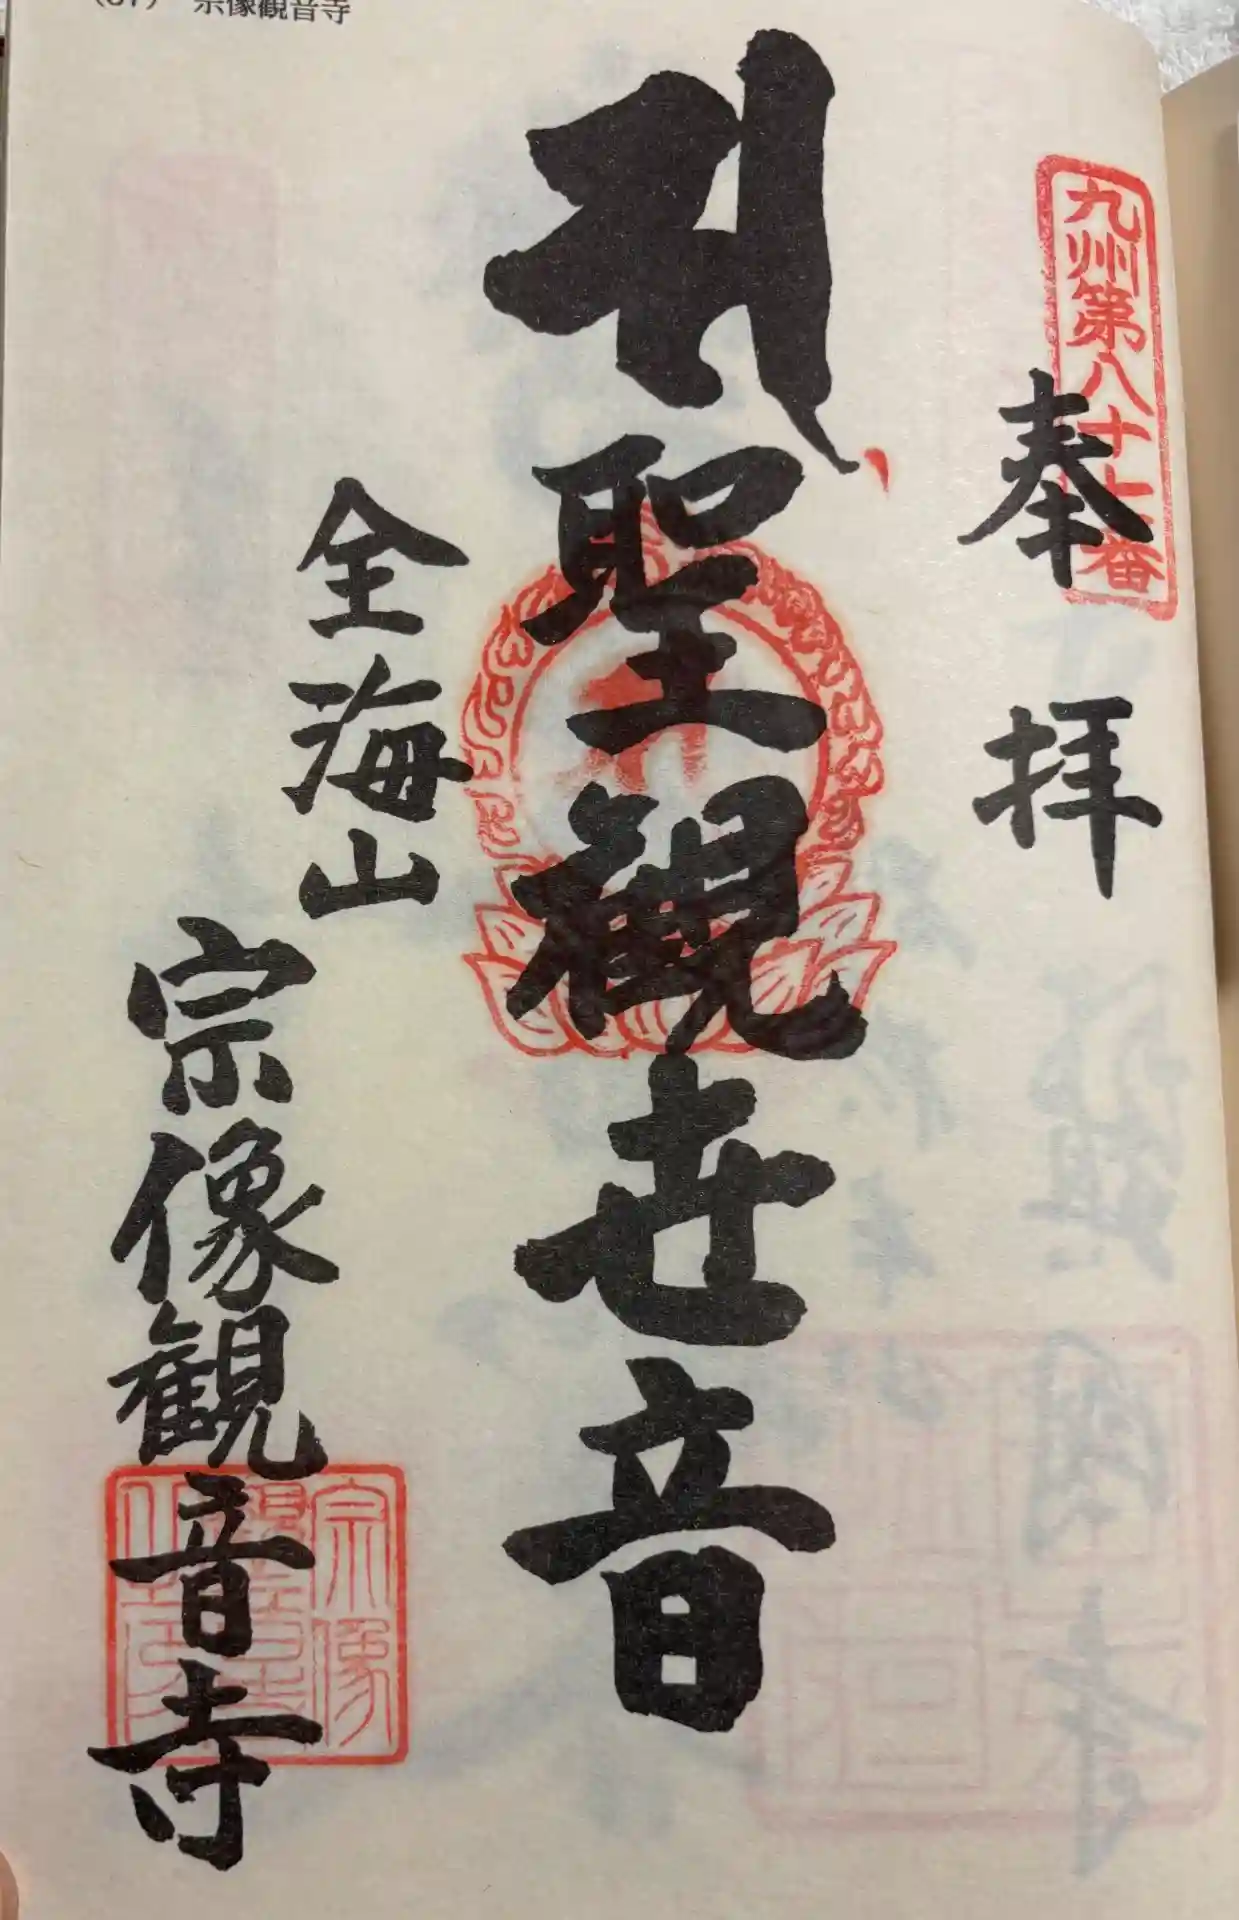 宗像観音寺
九州第八十七番
奉拝
聖観世音
全海山
宗像観音寺
宗像